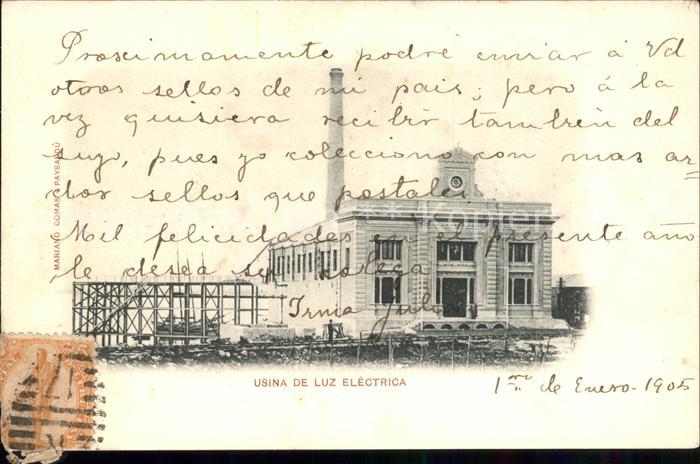 Proscimamente podré enviar á Vd
otros sellos de mi pais; pero á la
vez quisiera recibir tambien del
suyo, pues yo colecciono con mas ar-
dor sellos que postales
Mil felicidades en el presente año
le desea su colega
Irma
MARIANO COMAS - PAYSANDÚ
USINA DE LUZ ELÉCTRICA
1ro de Enero - 1905